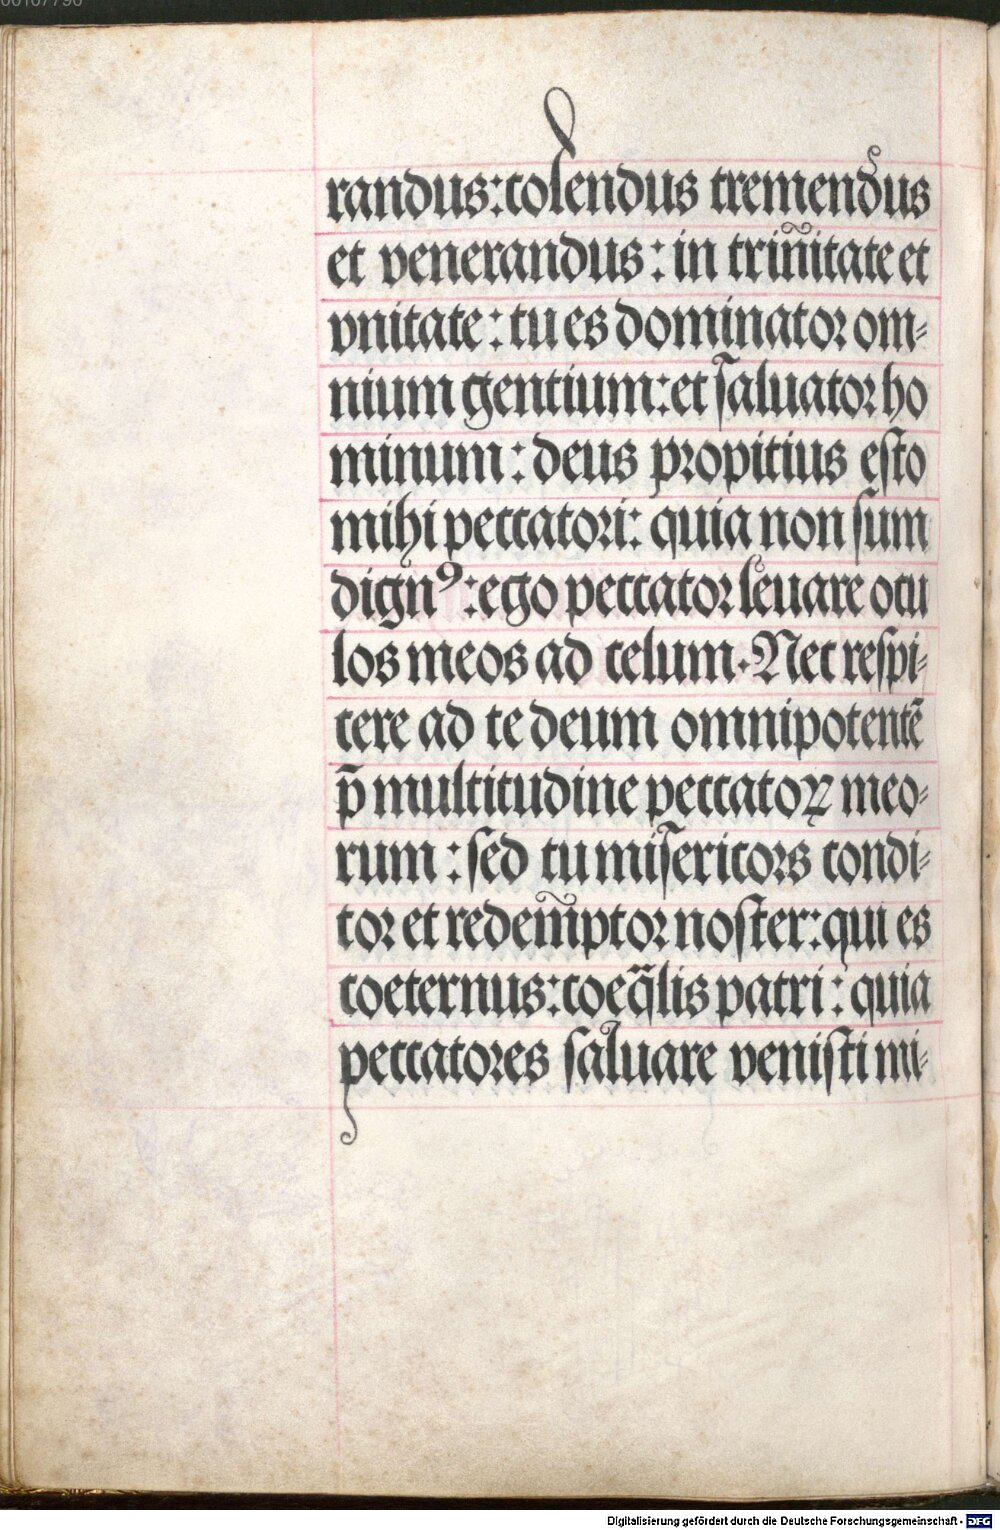 00107790
randus: colendus tremendus
et venerandus: in trinitate et
vnitate: tu es dominator om⸗
nium gentium: et saluator ho
minum: deus propitius esto
mihi peccatori: quia non sum
dignꝰ: ego peccator leuare ocu
los meos ad celum. Nec respi⸗
cere ad te deum omnipotentē
p̄ multitudine peccatoꝝ meo⸗
rum: sed tu misericors condi⸗
tor et redemptor noster: qui es
coeternus: coeq̄lis patri: quia
peccatores saluare venisti mi⸗
Digitalisierung gefördert durch die Deutsche Forschungsgemeinschaft - DFG